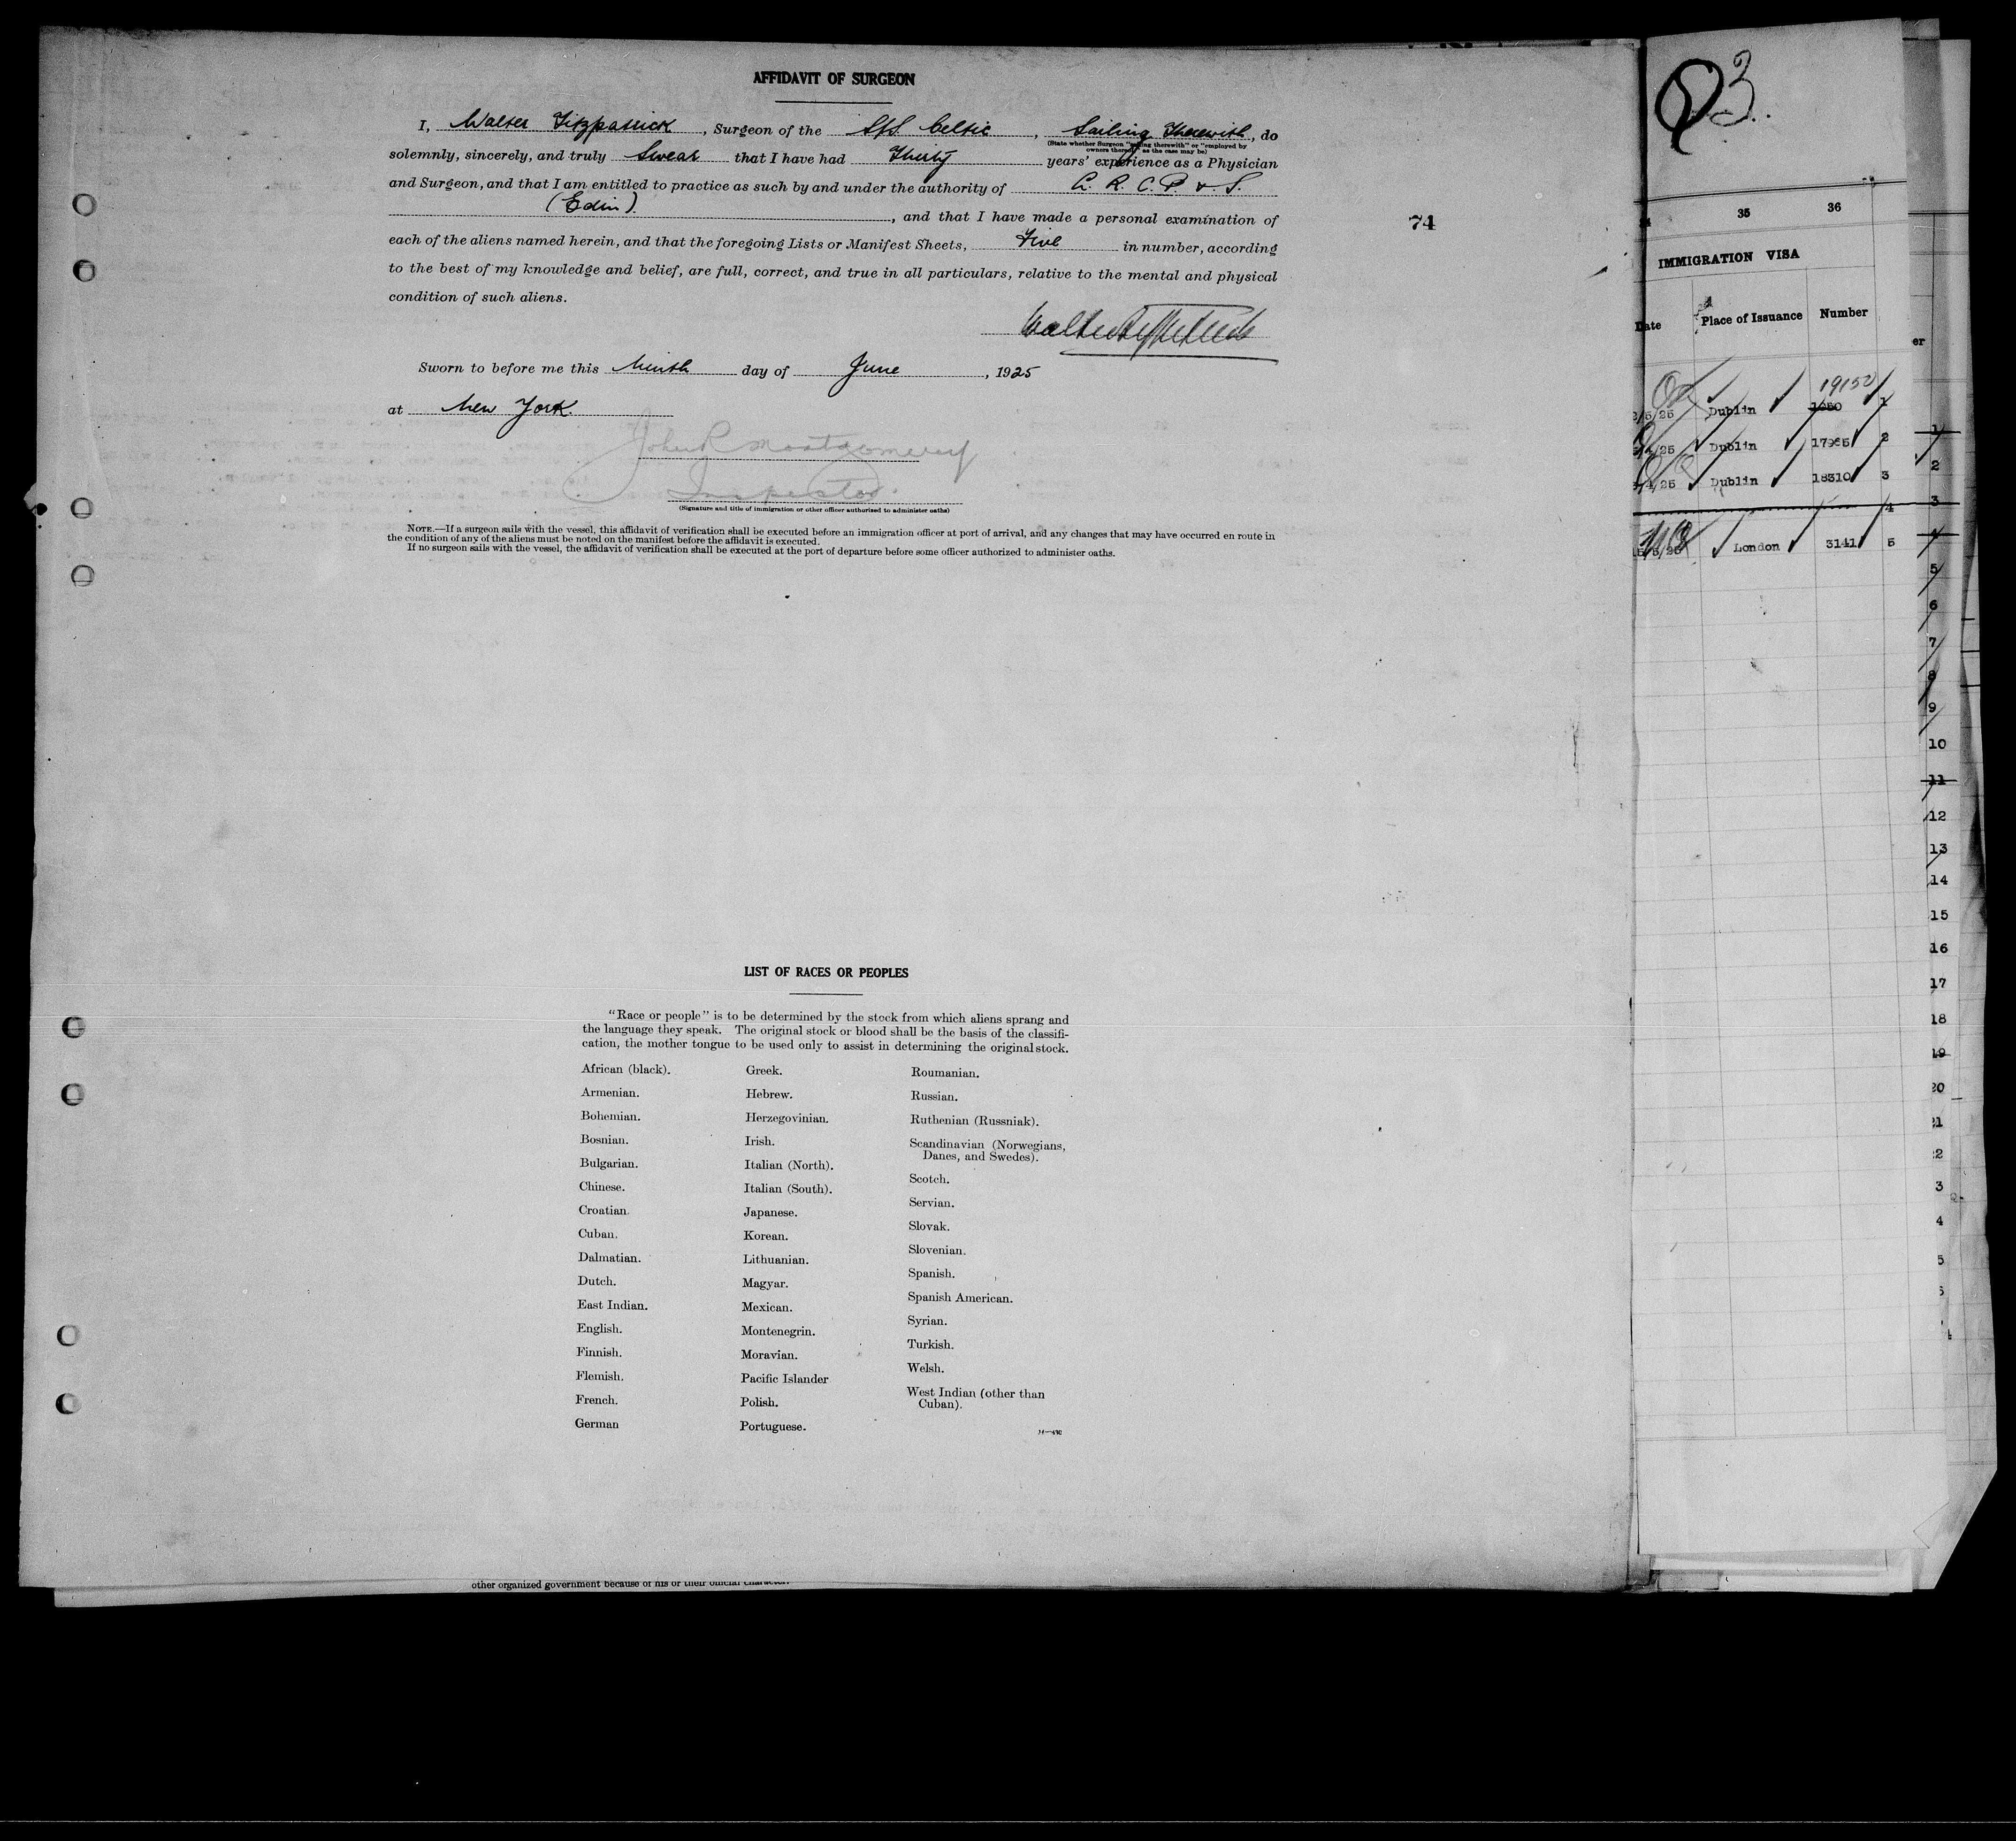 AFFIDAVIT OF SURGEON
I, Walter Fitzpatrick, Surgeon of the S/S. Celtic, Sailing Therewith, do
(State whether Surgeon "sailing therewith" or "employed by
owners thereof," as the case may be)
solemnly, sincerely, and truly Swear that I have had Thirty years' experience as a Physician
and Surgeon, and that I am entitled to practice as such by and under the authority of L. R. C. P. & S.
(Edin), and that I have made a personal examination of
each of the aliens named herein, and that the foregoing Lists or Manifest Sheets, Five in number, according
to the best of my knowledge and belief, are full, correct, and true in all particulars, relative to the mental and physical
condition of such aliens.
Walter Fitzpatrick
Sworn to before me this Ninth day of June, 1925
at New York.
John R Montgomery
Inspector.
(Signature and title of immigration or other officer authorized to administer oaths)
NOTE.—If a surgeon sails with the vessel, this affidavit of verification shall be executed before an immigration officer at port of arrival, and any changes that may have occurred en route in
the condition of any of the aliens must be noted on the manifest before the affidavit is executed.
If no surgeon sails with the vessel, the affidavit of verification shall be executed at the port of departure before some officer authorized to administer oaths.
74
LIST OF RACES OR PEOPLES
"Race or people" is to be determined by the stock from which aliens sprang and
the language they speak. The original stock or blood shall be the basis of the classifi-
cation, the mother tongue to be used only to assist in determining the original stock.
African (black).
Armenian.
Bohemian.
Bosnian.
Bulgarian.
Chinese.
Croatian.
Cuban.
Dalmatian.
Dutch.
East Indian.
English.
Finnish.
Flemish.
French.
German
Greek.
Hebrew.
Herzegovinian.
Irish.
Italian (North).
Italian (South).
Japanese.
Korean.
Lithuanian.
Magyar.
Mexican.
Montenegrin.
Moravian.
Pacific Islander
Polish.
Portuguese.
Roumanian.
Russian.
Ruthenian (Russniak).
Scandinavian (Norwegians,
Danes, and Swedes).
Scotch.
Servian.
Slovak.
Slovenian.
Spanish.
Spanish American.
Syrian.
Turkish.
Welsh.
West Indian (other than
Cuban).
other organized government because of his or their official character.
3.
35 36
IMMIGRATION VISA
Date Place of Issuance Number
19150
/5/25 Dublin 1
/4/25 Dublin 17935 2
/4/25 Dublin 18310 3
4
15/5/25 London 3141 5
er
1
2
3
4
5
6
7
8
9
10
11
12
13
14
15
16
17
18
19
20
21
22
3
4
5